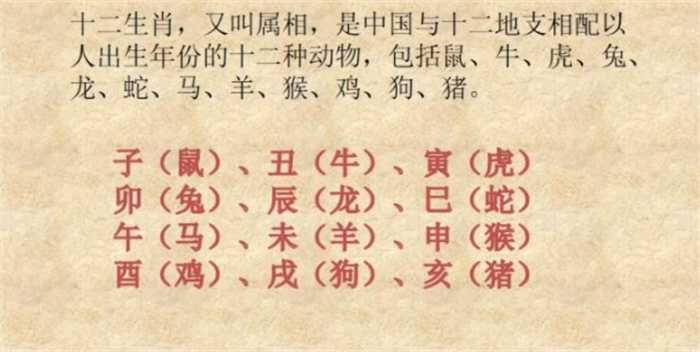 十二生肖，又叫属相，是中国与十二地支相配以
人出生年份的十二种动物，包括鼠、牛、虎、兔、
龙、蛇、马、羊、猴、鸡、狗、猪。
子（鼠）、丑（牛）、寅（虎）
卯（兔）、辰（龙）、巳（蛇）
午（马）、未（羊）、申（猴）
酉（鸡）、戌（狗）、亥（猪）